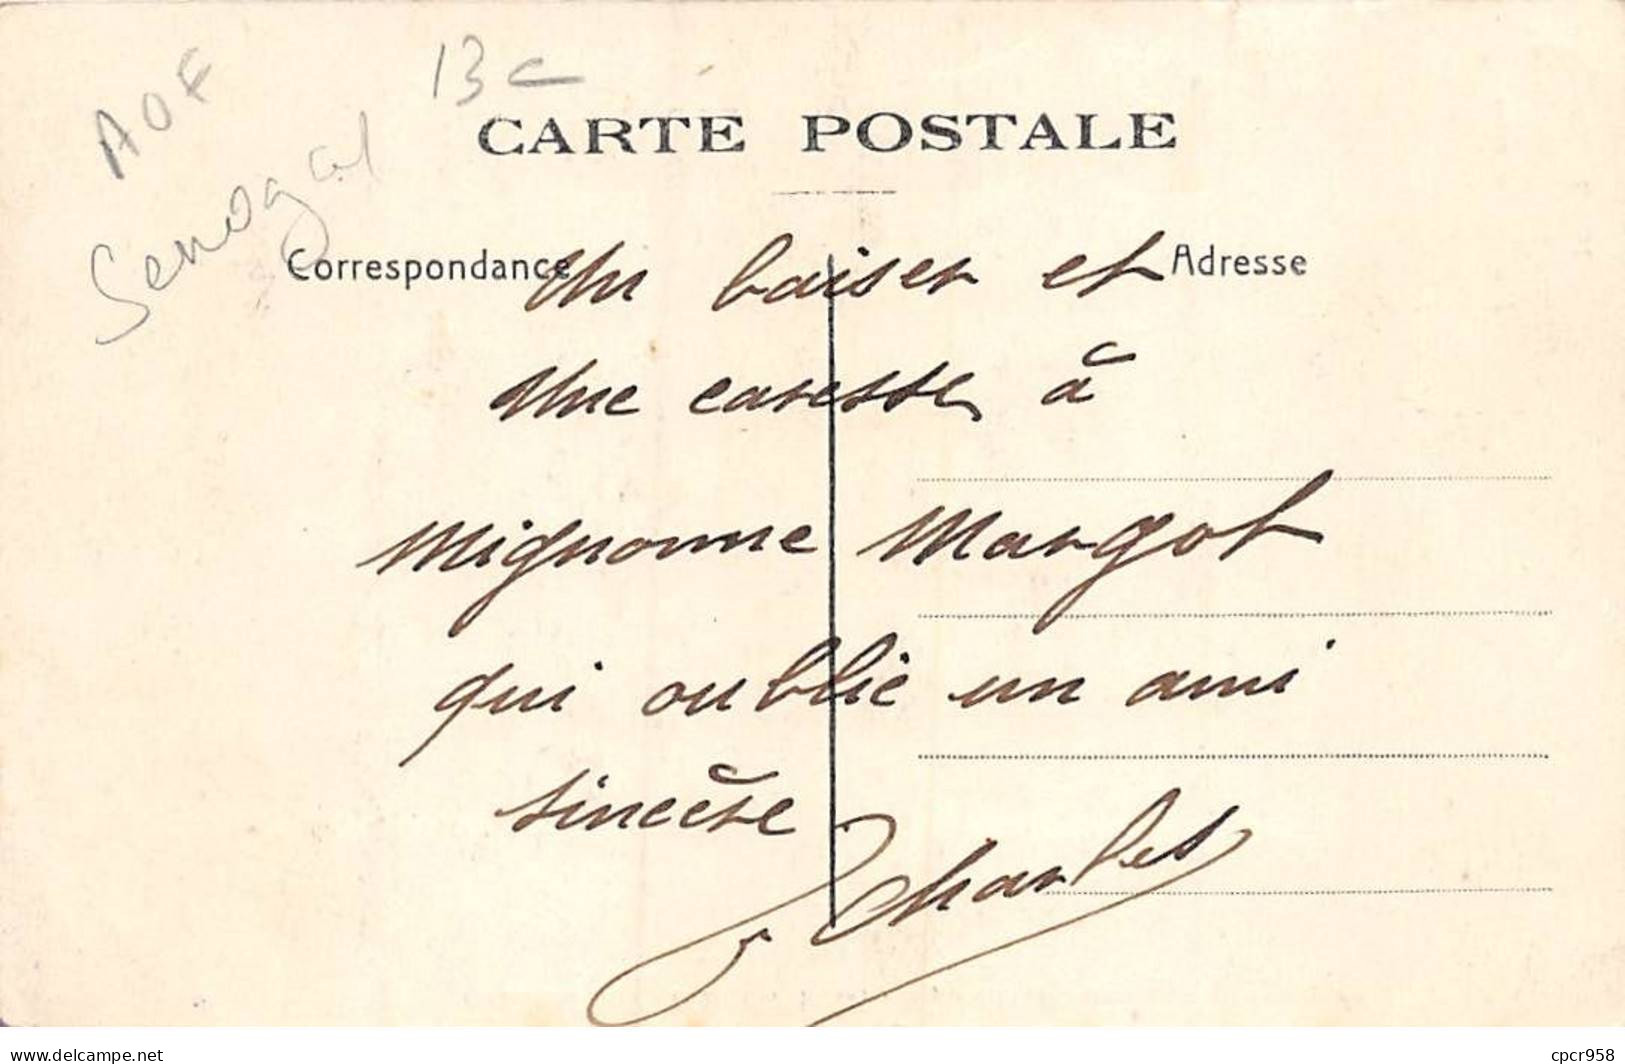 AOF
Senegal
13 c
CARTE POSTALE
Correspondance
Adresse
Un baiser et
Une caresse à
Mignonne Margot
qui oublie un ami
sincère
Charles
www.delcampe.net
cpcr958